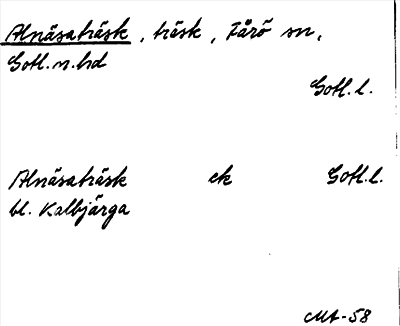 Alnäsaträsk, träsk, Fårö sn,
Gotl. n. hd
Gotl. l.
Alnäsaträsk ek Gotl. l.
bl. Kalbjärga
MA-58